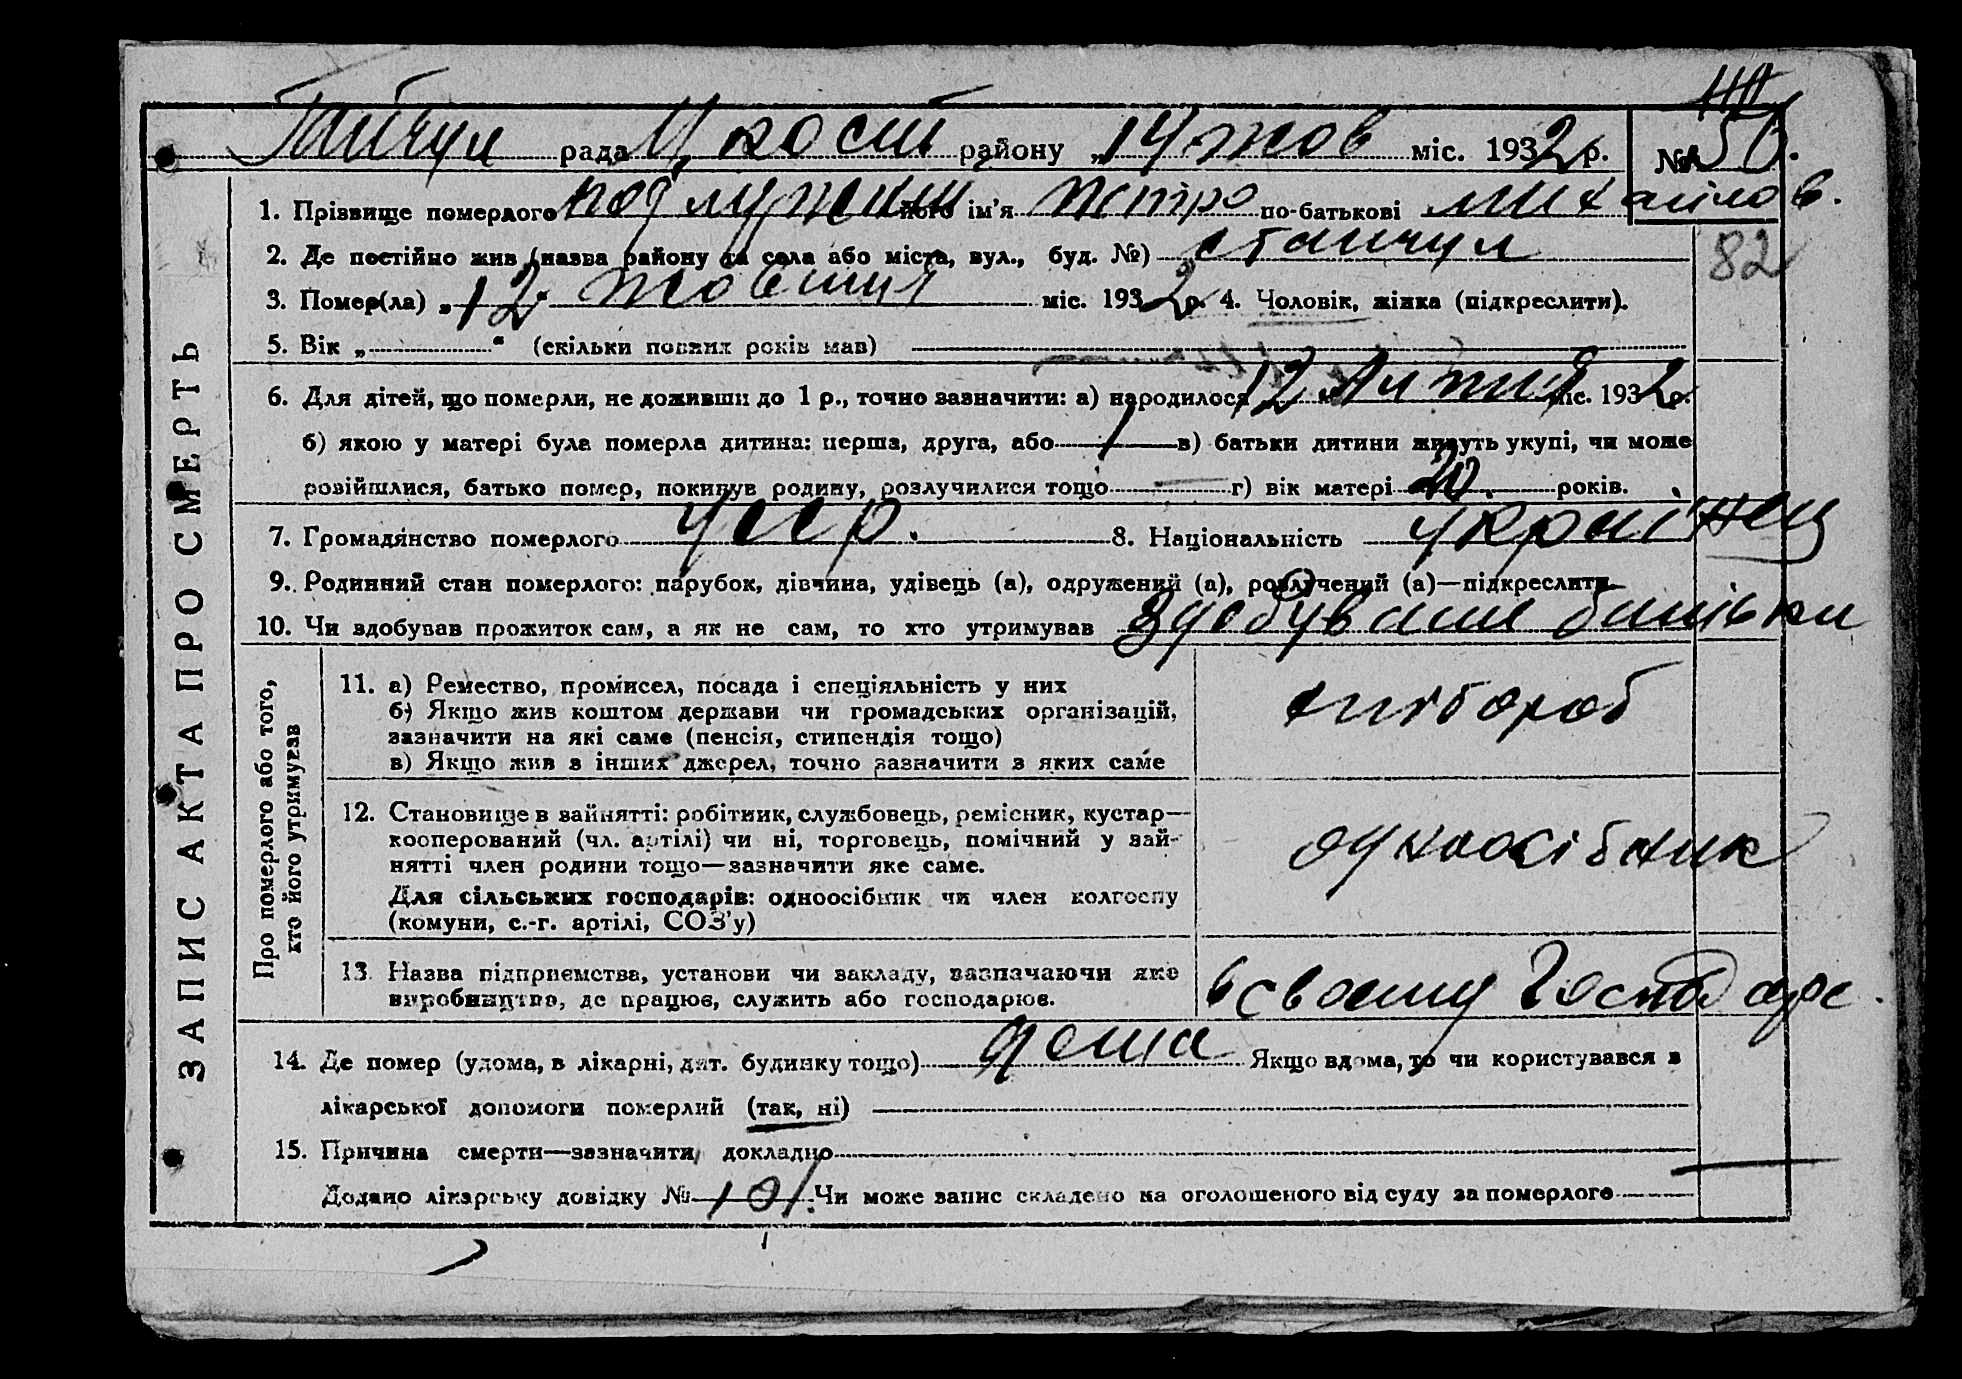 рада района „14 жов міс. 1932 р. № 50.
1. Прізвище померлого його ім'я Петро по-батькові Михайлов.
82
2. Де постійно жив (назва району та села або міста, вул., буд. №)
3. Помер(ла) „12 жовтня міс. 1932 р. 4. Чоловік, жінка (підкреслити).
5. Вік „ “ (скільки повних років мав)
6. Для дітей, що померли, не доживши до 1 р., точно зазначити: а) народилося 12 липня міс. 1932 р.
б) якою у матері була померла дитина: перша, друга, або 1 в) батьки дитини живуть укупі, чи може
розійшлися, батько помер, покинув родину, розлучилися тощо г) вік матері 20. років.
7. Громадянство померлого УССР. 8. Національність українец
9. Родинний стан померлого: парубок, дівчина, удівець (а), одружений (а), розлучений (а)—підкреслити
10. Чи здобував прожиток сам, а як не сам, то хто утримував здобували батьки
ЗАПИС АКТА ПРО СМЕРТЬ
Про померлого або того,
хто його утримував
11. а) Ремество, промисел, посада і спеціяльність у них
б) Якщо жив коштом держави чи громадських організацій,
зазначити на які саме (пенсія, стипендія тощо)
в) Якщо жив з інших джерел, точно зазначити з яких саме
хлібороб
12. Становище в зайнятті: робітник, службовець, ремісник, кустар—
кооперований (чл. артілі) чи ні, торговець, помічний у зай-
нятті член родини тощо—зазначити яке саме.
Для сільських господарів: одноосібник чи член колгоспу
(комуни, с.-г. артілі, СОЗ'у)
одноосібник
13. Назва підприємства, установи чи закладу, зазначаючи яке
виробництво, де працює, служить або господарює.
в своему господарс.
14. Де помер (удома, в лікарні, дит. будинку тощо) дома Якщо вдома, то чи користувався з
лікарської допомоги померлий (так, ні)
15. Причина смерти—зазначити докладно
Додано лікарську довідку № 101. Чи може запис складено на оголошеного від суду за померлого